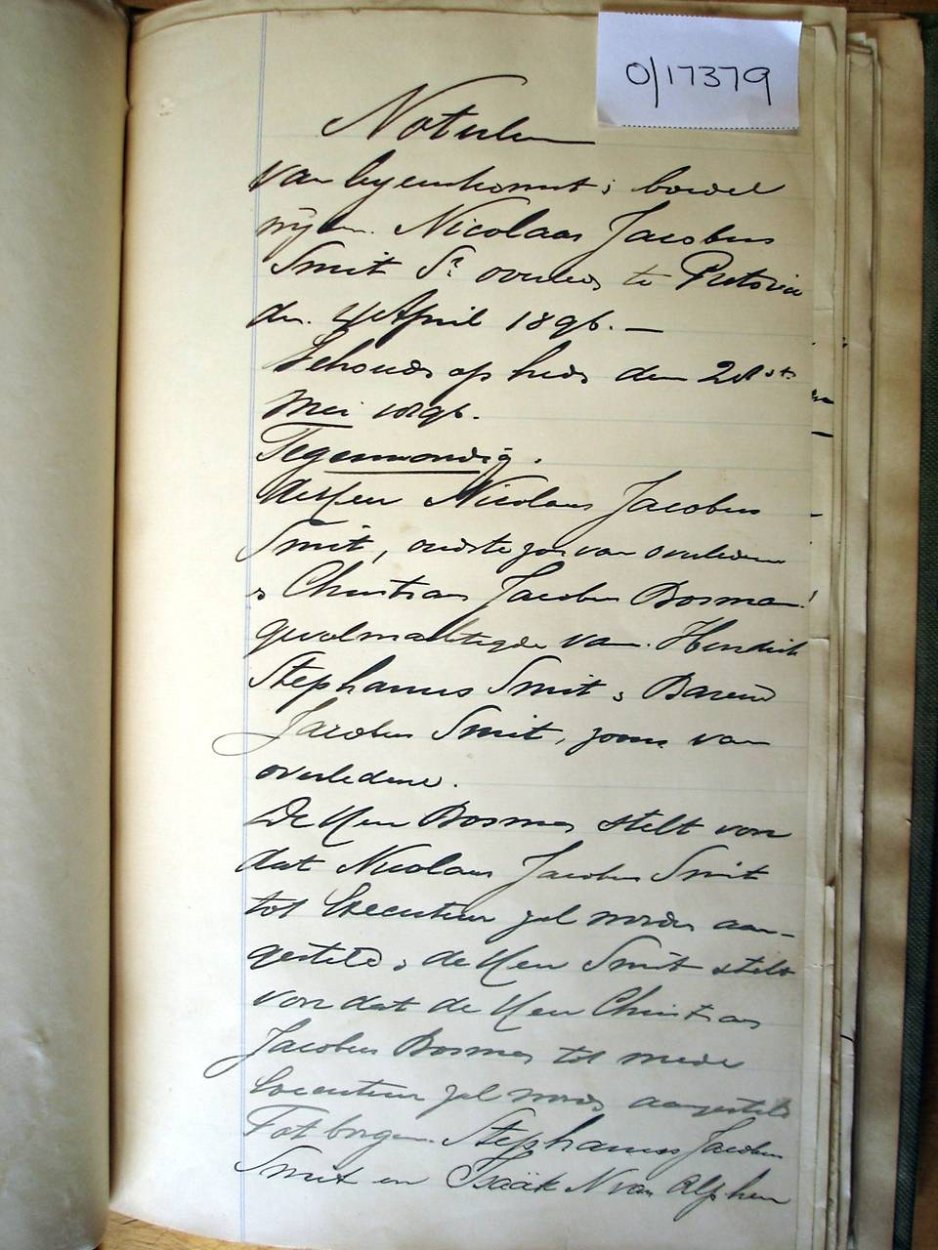 0/17379
Notulen
van byeenkomst; boedel
wijlen Nicolaas Jacobus
Smit Sr overleden te Pretoria
den 4 April 1896. —
Gehouden op heden den 21ste
Mei 1896.
Tegenwoordig.
de Heer Nicolaas Jacobus
Smit, oudste zoon van overledene
& Christiaan Jacobus Bosman
gevolmachtigde van Hendrik
Stephanus Smit & Barend
Jacobus Smit, zoons van
overledene.
De Heer Bosman stelt voor
dat Nicolaas Jacobus Smit
tot Executeur zal worden aan-
gesteld, de Heer Smit stelt
voor dat de Heer Christiaan
Jacobus Bosman tot mede
Executeur zal worden aangesteld
Tot borgen Stephanus Jacobus
Smit en Isaäk N van Alphen